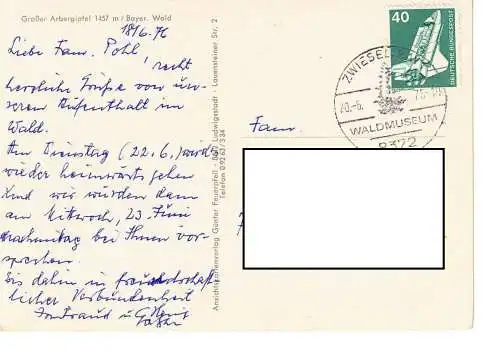 Großer Arbergipfel 1457 m / Bayer. Wald
18/6. 76
Liebe Fam. Pohl, recht
herzliche Grüße von un-
serem Aufenthalt im
Wald.
Am Dienstag (22.6.) wird's
wieder heimwärts gehen
und wir würden dann
am Mittwoch, 23. Juni
nachmittag bei Ihnen vor-
sprechen.
Bis dahin in freundschaft
licher Verbundenheit
Irmtraud u.
Ansichtskartenverlag Günter Feuerpfeil · Ludwigsstadt · Lauensteiner Str. 2
Telefon 09263/334
40
DEUTSCHE BUNDESPOST
ZWIESEL
20.-6. 76
WALDMUSEUM
8372
Fam.